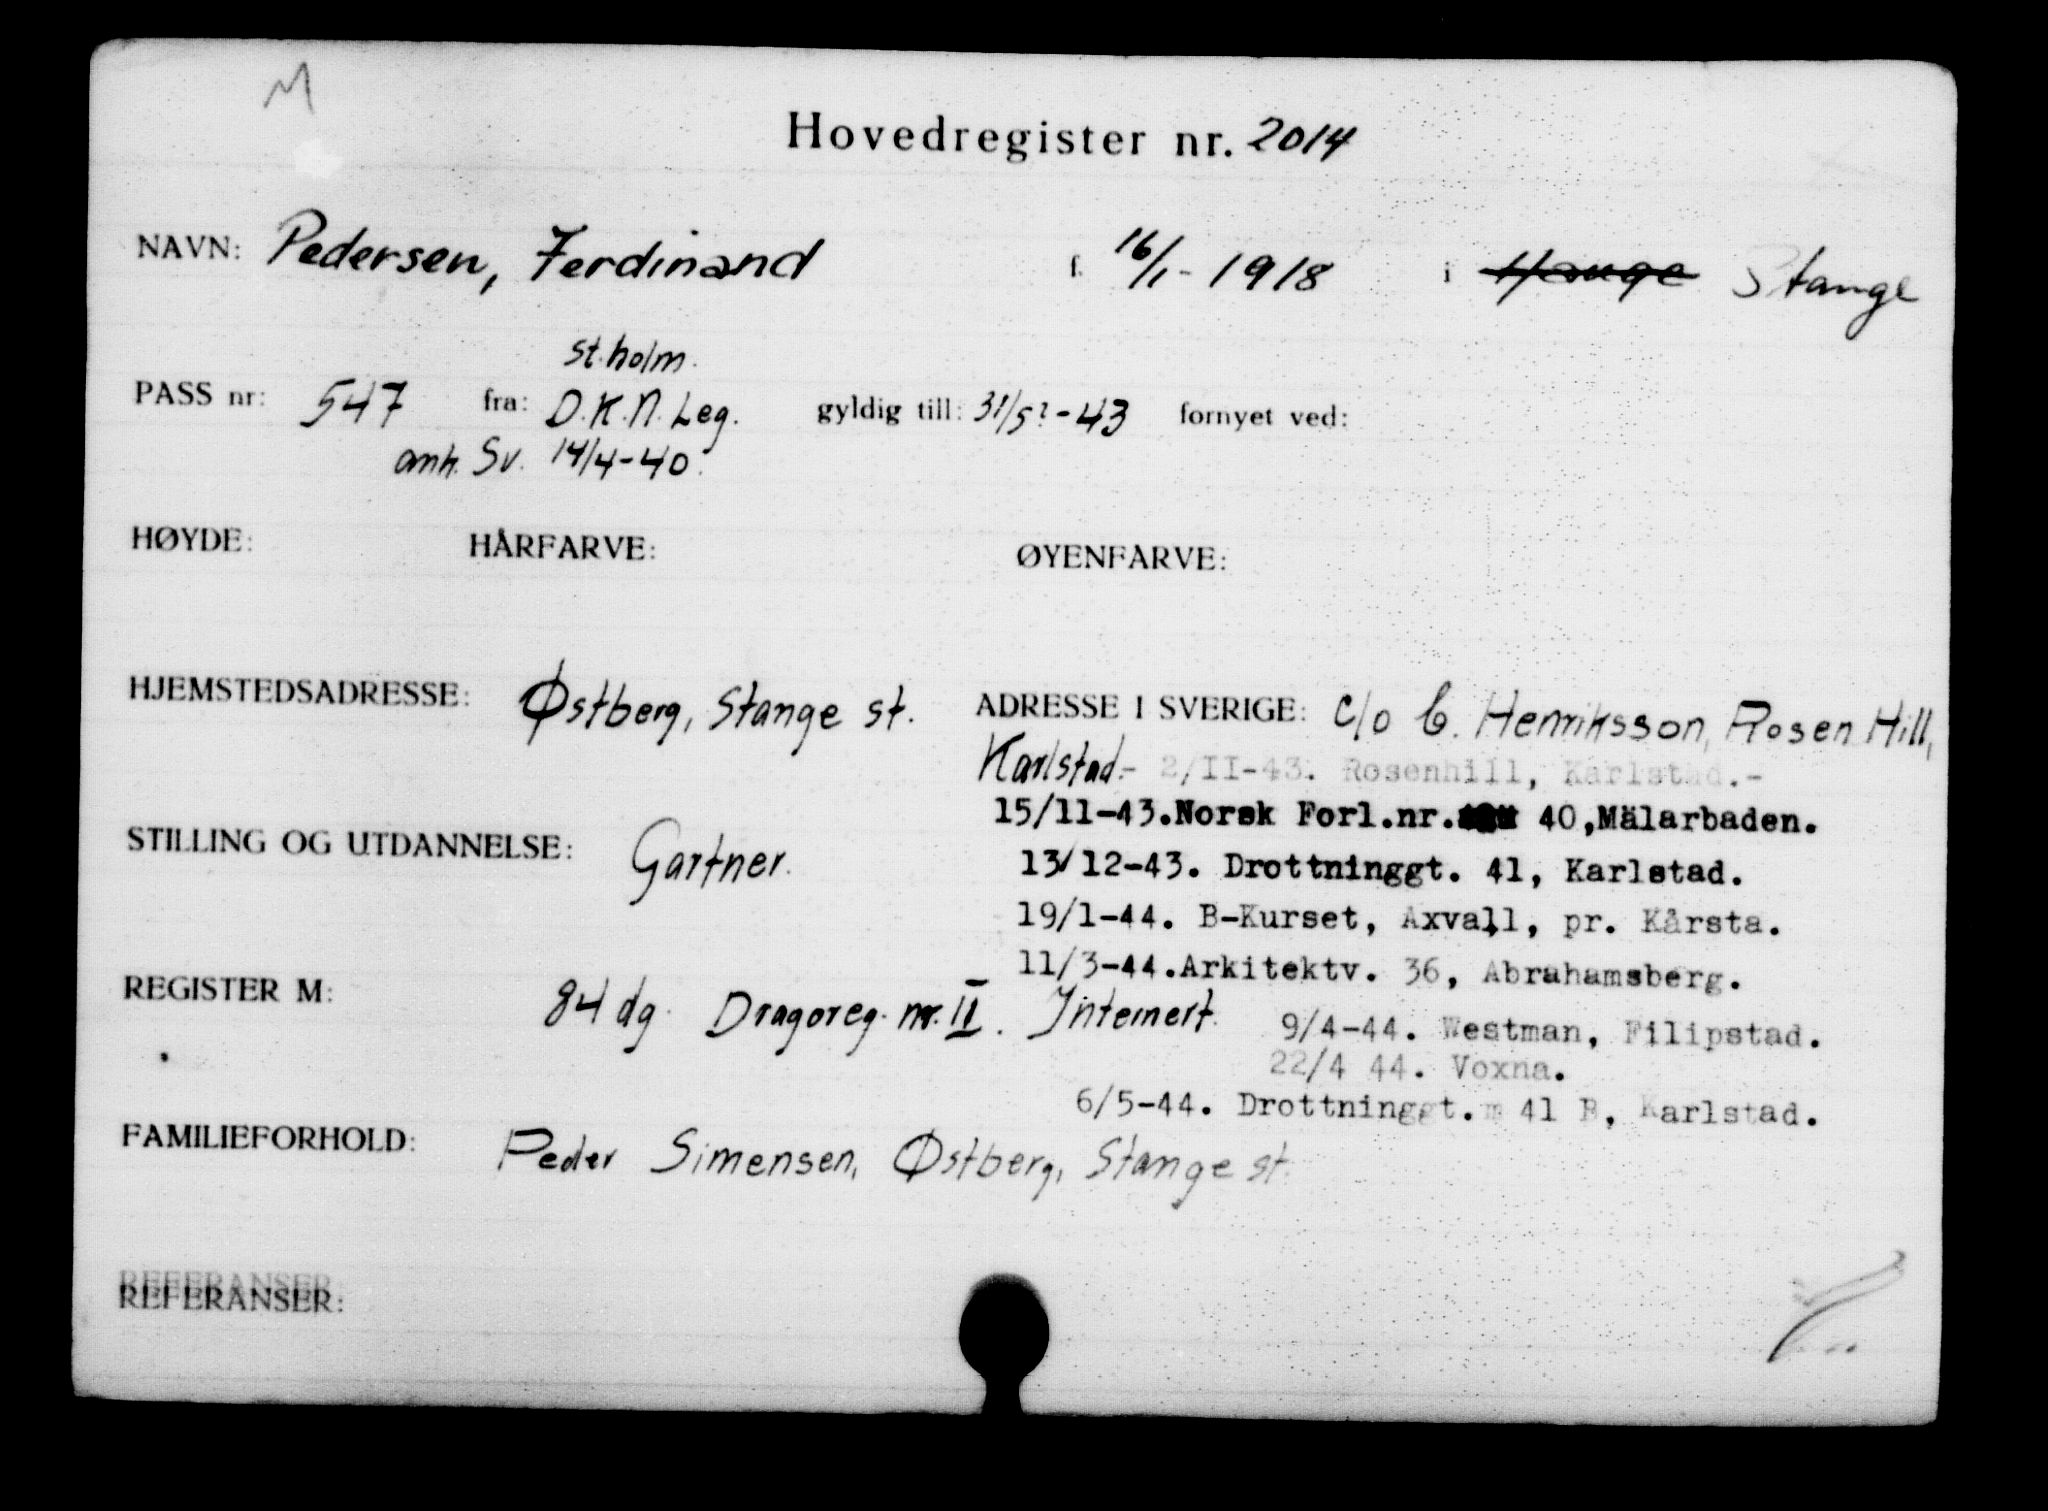 M
Hovedregister nr. 2014
NAVN: Pedersen, Ferdinand f. 16/1-1918 i Hauge Stange
st.holm.
PASS nr: 547 fra: D.K.N. Leg. gyldig till: 31/5?-43 fornyet ved:
ank. Sv. 14/4-40.
HØYDE: HÅRFARVE: ØYENFARVE:
HJEMSTEDSADRESSE: Østberg, Stange st. ADRESSE I SVERIGE: c/o C. Henriksson, Rosen Hill,
Karlstad.- 2/II-43. Rosenhill, Karlstad.-
15/11-43.Norsk Forl.nr. 40,Mälarbaden.
STILLING OG UTDANNELSE: Gartner. 13/12-43. Drottninggt. 41, Karlstad.
19/1-44. B-Kurset, Axvall, pr. Kårsta.
11/3-44.Arkitektv. 36, Abrahamsberg.
REGISTER M: 84 dg. Dragoreg. nr. II. Internert. 9/4-44. Westman, Filipstad.
22/4 44. Voxna.
6/5-44. Drottninggt. 41 B, Karlstad.
FAMILIEFORHOLD: Peder Simensen, Østberg, Stange st.
REFERANSER
REFERANSER: